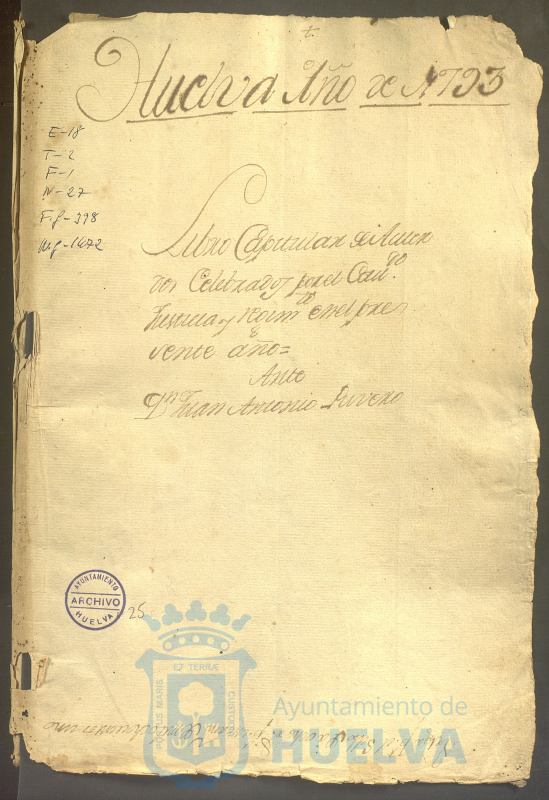 +
Huelva Año de 1793
E-18
T-2
F-1
N-27
Fig-398
Mg-1472
Libro Capitular de Acuer
dos Celebrados por el Con.
Justicia y Regim.to en el pre
sente año=
Ante
Dn Juan Antonio
AYUNTAMIENTO
ARCHIVO
HUELVA
25
ET TERRÆ
PORTUS MARIS
CUSTODIA
Ayuntamiento de
HUELVA